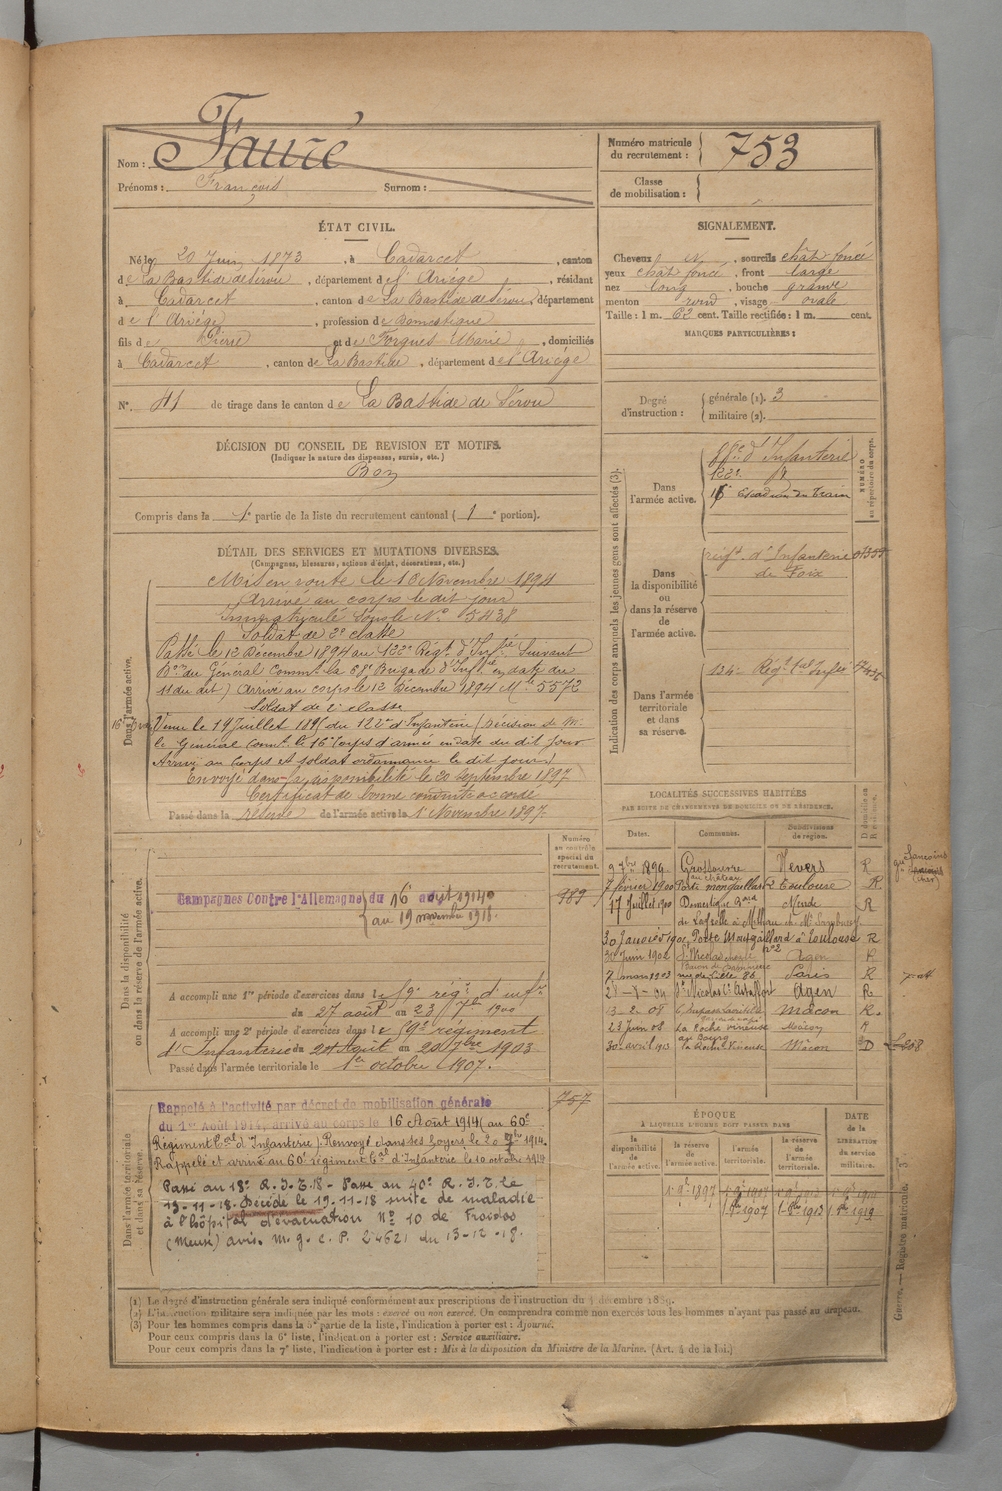 Nom : Fauré
Prénoms : François Surnom :
Numéro matricule du recrutement : 753
Classe de mobilisation :
ÉTAT CIVIL.
Né le 20 Juin 1873, à Cadarcet, canton
de La Bastide de Sérou, département de l'Ariége, résidant
à Cadarcet, canton de La Bastide de Sérou, département
de l'Ariége, profession de Domestique
fils de Pierre et de Forgues Marie, domiciliés
à Cadarcet, canton de La Bastide, département de l'Ariége
N°. 41 de tirage dans le canton de La Bastide de Sérou
SIGNALEMENT.
Cheveux , sourcils chât foncé
yeux chât foncé, front large
nez long, bouche grande
menton rond, visage ovale
Taille : 1 m. 62 cent. Taille rectifiée : 1 m. cent.
MARQUES PARTICULIÈRES :
Degré d'instruction : générale (1). 3
militaire (2).
DÉCISION DU CONSEIL DE REVISION ET MOTIFS.
(Indiquer la nature des dispenses, sursis, etc.)
Bon
Compris dans la 1e partie de la liste du recrutement cantonal (1e portion).
DÉTAIL DES SERVICES ET MUTATIONS DIVERSES.
(Campagnes, blessures, actions d'éclat, décorations, etc.)
Dans l'armée active.
Mis en route le 16 Novembre 1894
Arrivé au corps le dit jour
Immatriculé sous le N° 5438
Soldat de 2e classe
Passé le 12 Décembre 1894 au 122e Régt d'Infie Suivant
du Général Commt la 68e Brigade d'Inft en date du
11 du dit) Arrivé au corps le 12 Décembre 1894 Mle 5572
Soldat de 2e classe
Venu le 14 Juillet 1895 du 122e d'Infanterie (décision de Mr
le Général Commt le 16e Corps d'armée en date du dit jour
Arrivé au Corps et soldat ordonnance le dit jour)
Envoyé dans la disponibilité le 20 Septembre 1897
Certificat de bonne conduite accordé
Passé dans la réserve de l'armée active le 1er Novembre 1897
Indication des corps auxquels les jeunes gens sont affectés (3).
NUMÉRO au répertoire du corps.
Dans l'armée active.
d'Infanterie
122e
Escadron du Train
Dans la disponibilité ou dans la réserve de l'armée active.
régt. d'Infanterie
de Foix
Dans l'armée territoriale et dans sa réserve.
134e Régt tal Infie
LOCALITÉS SUCCESSIVES HABITÉES
PAR SUITE DE CHANGEMENTS DE DOMICILE OU DE RÉSIDENCE.
Dates. Communes. Subdivisions de région. D. domicile ou R. résidence.
9 7bre 1899 Grossouvre au château Nevers R
7 février 1900 Porte Montgaillard 2 Toulouse R
17 Juillet 1900 Domestique Mende R
30 Janvier 1902 Porte Montgaillard à Toulouse R
30 Juin 1902 St Nicolas Agen R
7 mars 1903 rue de Lille 86 Paris R
Agen R
13-2-08 Mâcon R
23 Juin 08 La Roche vineuse Mâcon R
30 avril 1913 au Bourg la Roche Vineuse Mâcon D
Dans la disponibilité ou dans la réserve de l'armée active.
Numéro au contrôle spécial du recrutement.
989
Campagnes Contre l'Allemagne du 16 août 1914
au 19 novembre 1918.
A accompli une 1re période d'exercices dans le 59e régt d'infie
du 27 août au 23 7bre 1900
A accompli une 2e période d'exercices dans le 59e régiment
d'Infanterie du 24 Août au 20 7bre 1903
Passé dans l'armée territoriale le 1er octobre 1907.
Dans l'armée territoriale et dans sa réserve.
757
Rappelé à l'activité par décret de mobilisation générale
du 1er Août 1914, arrivé au corps le 16 Août 1914 (au 60e
Régiment tal d'Infanterie). Renvoyé dans ses foyers le 20 7bre 1914.
Rappelé et arrivé au 60e régiment tal d'Infanterie le 10 octobre 1914
Passé au 18e R.I.T. 18 - Passé au 40e R.I.T. le
13-11-18. Décédé le 19-11-18 suite de maladie
à l'hôpital d'évacuation N° 10 de Froidos
(Meuse) avis. m. g. c. P. 24621 du 13-12-18.
ÉPOQUE
À LAQUELLE L'HOMME DOIT PASSER DANS
la disponibilité de l'armée active. la réserve de l'armée active. l'armée territoriale. la réserve de l'armée territoriale.
DATE de la LIBÉRATION du service militaire.
1 9bre 1897
1 8bre 1907 1 8bre 1913 1 8bre 1919
Guerre. — Registre matricule. 3
(1) Le degré d'instruction générale sera indiqué conformément aux prescriptions de l'instruction du 4 décembre 1889.
(2) L'instruction militaire sera indiquée par les mots : exercé ou non exercé. On comprendra comme non exercés tous les hommes n'ayant pas passé au drapeau.
(3) Pour les hommes compris dans la 5e partie de la liste, l'indication à porter est : Ajourné.
Pour ceux compris dans la 6e liste, l'indication à porter est : Service auxiliaire.
Pour ceux compris dans la 7e liste, l'indication à porter est : Mis à la disposition du Ministre de la Marine. (Art. 4 de la loi.)